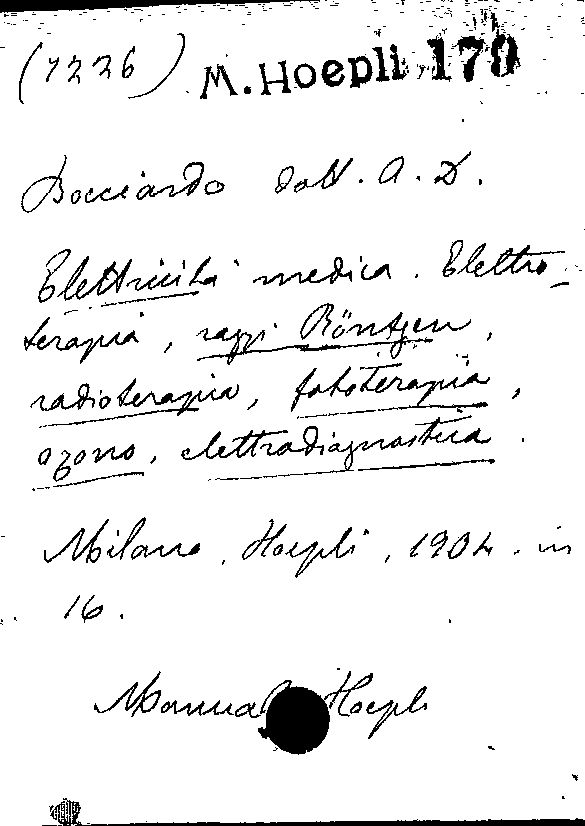 (1226) M. Hoepli 179
Bocciardo dott. A. D.
Elettricità medica. Elettro-
terapia, raggi Röntgen,
radioterapia, fototerapia,
ozono, elettrodiagnostica.
Milano, Hoepli, 1904. in
16.
Hoepli